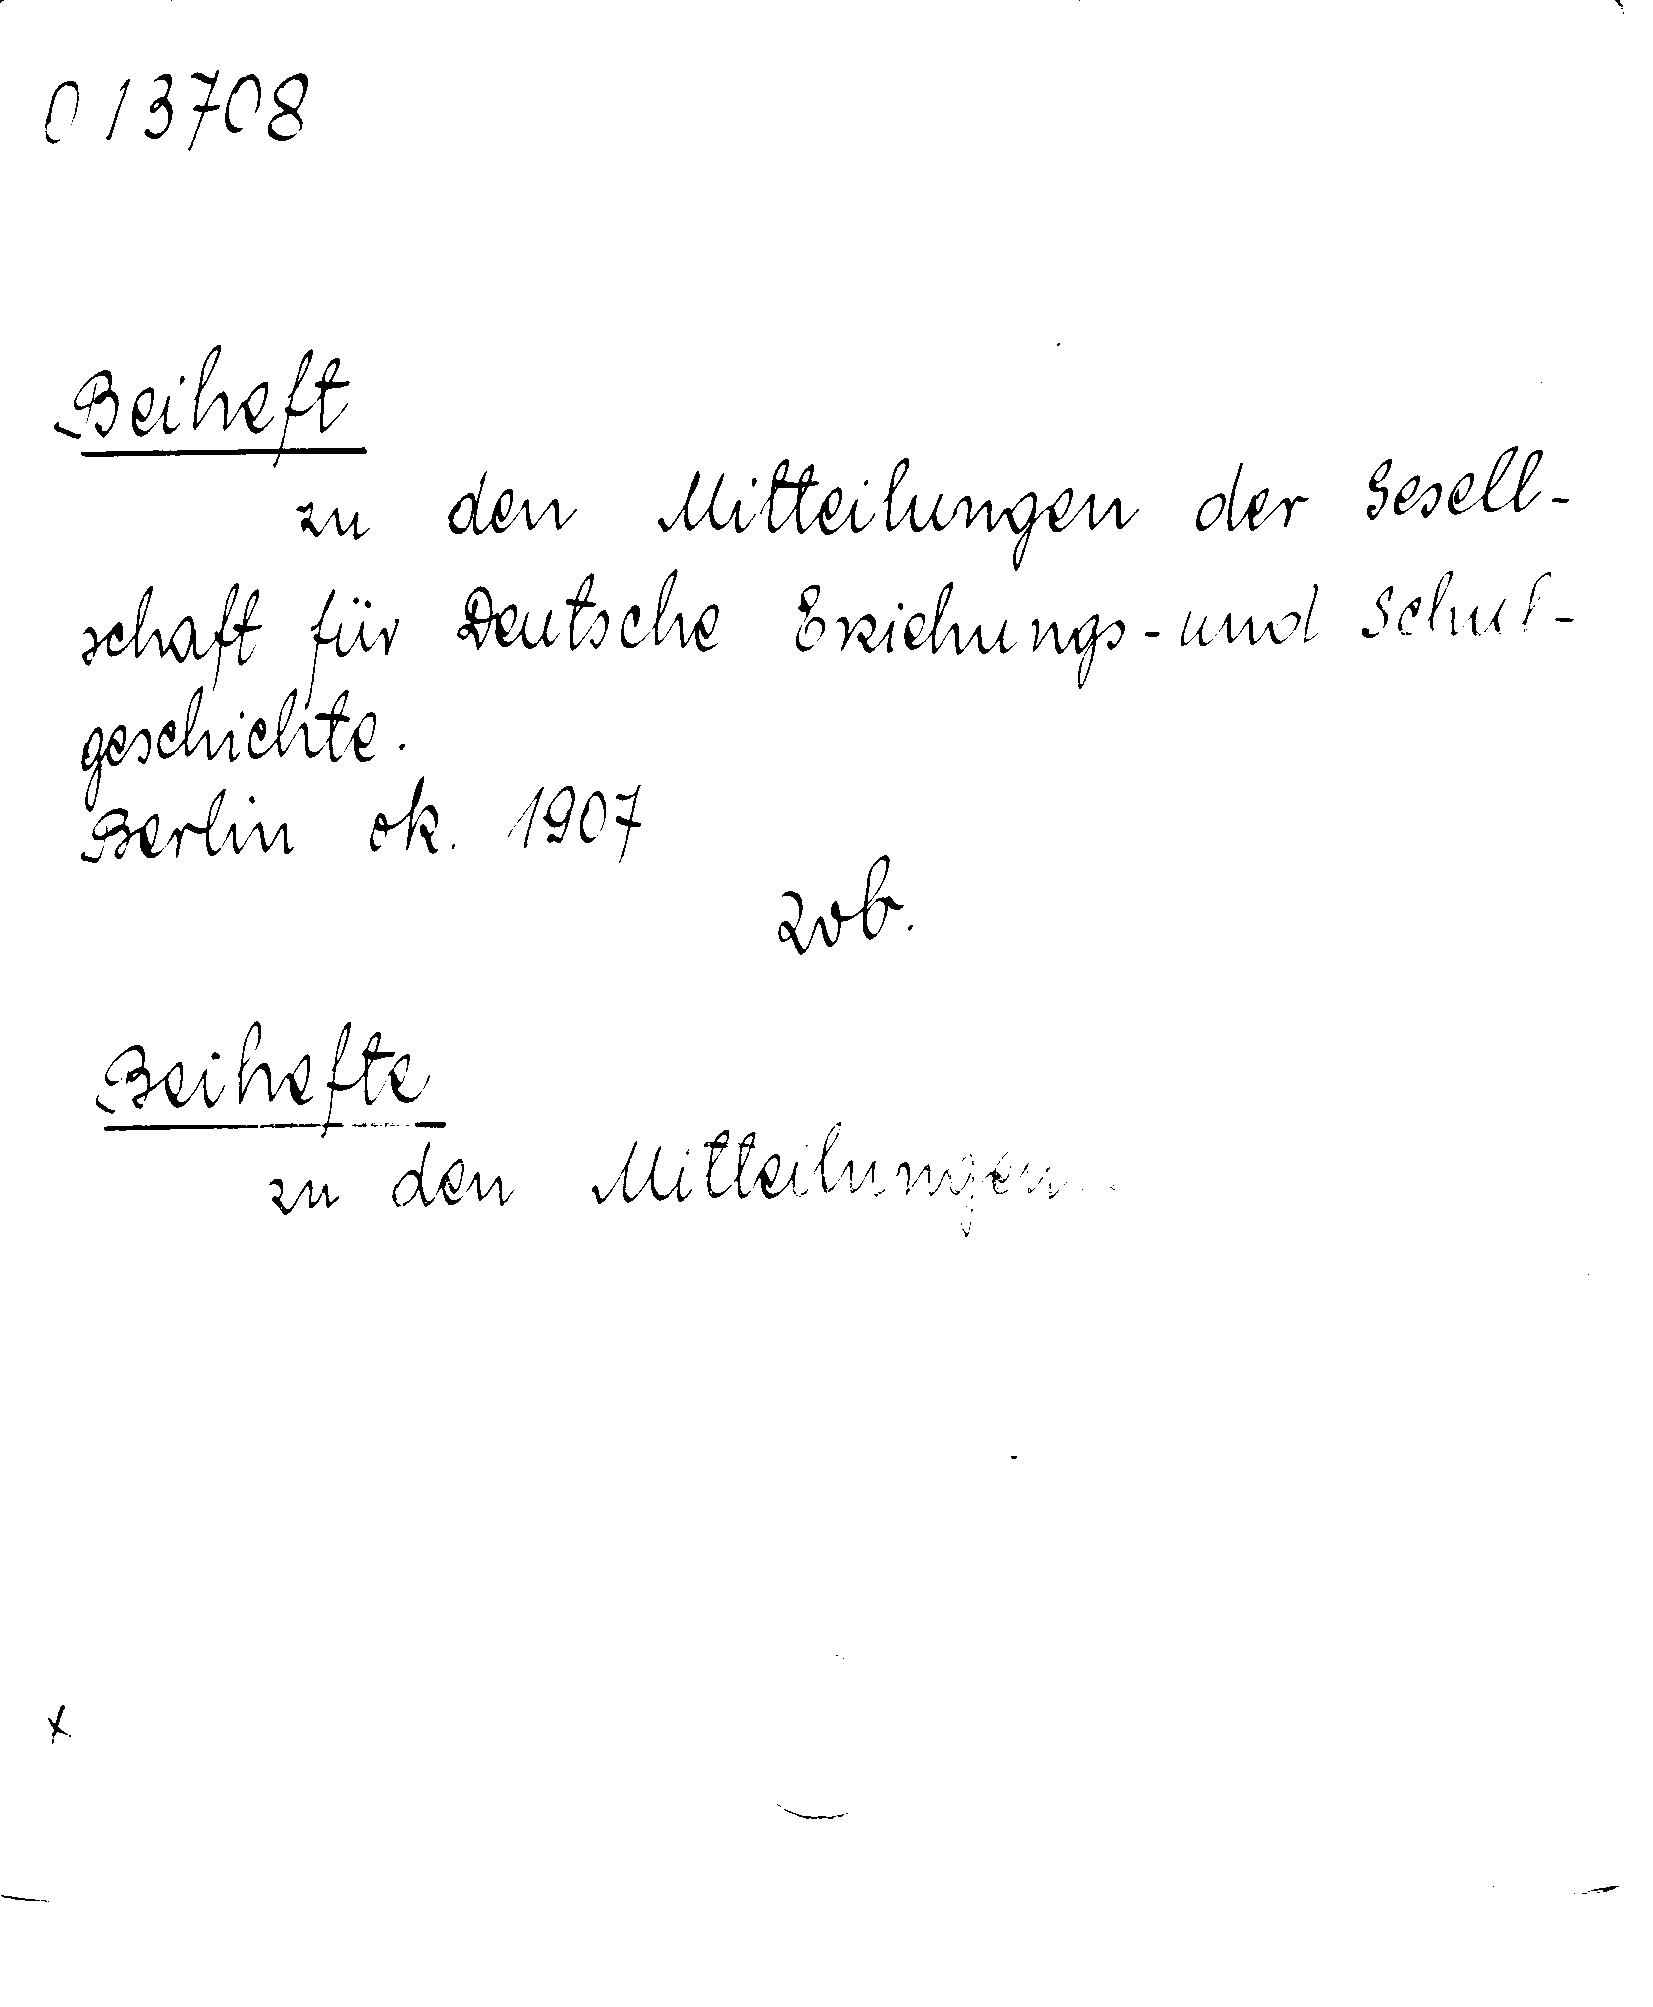 013708
Beiheft
zu den Mitteilungen der Gesell-
schaft für Deutsche Erziehungs- und Schul-
geschichte.
Berlin ok. 1907
zob.
Beihefte
zu den Mitteilungen...
x